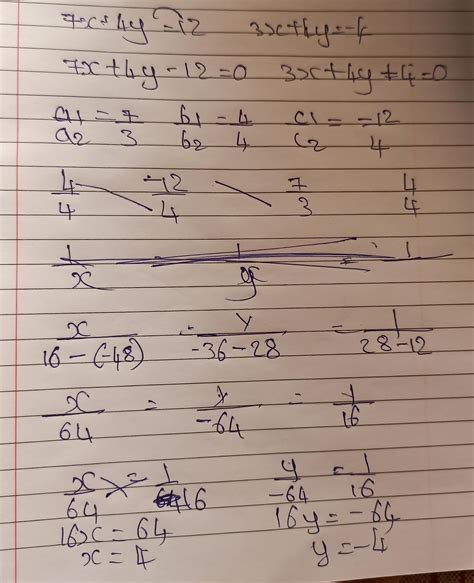 7x+4y=12 3x+4y=-4
7x+4y-12=0 3x+4y+4=0
a1/a2 = 7/3 b1/b2 = 4/4 c1/c2 = -12/4
4/4 -12/4 7/3 4/4
1/x 1/y = 1
x/16-(-48) = y/-36-28 = 1/28-12
x/64 = y/-64 = 1/16
x/64 = 1/16 y/-64 = 1/16
16x=64 16y=-64
x=4 y=-4